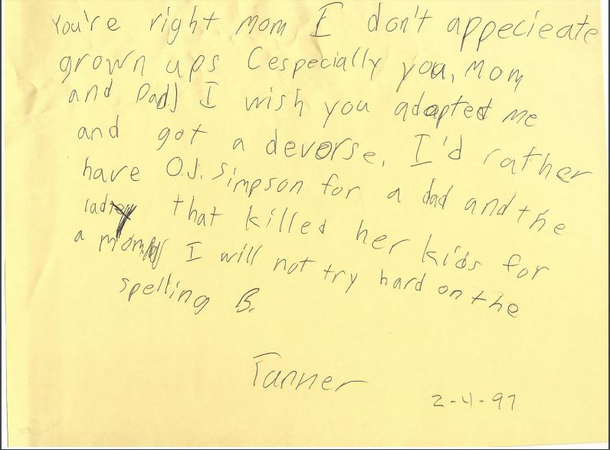 You're right mom I don't appecieate
grown ups (especially you, Mom
and Dad) I wish you adopted me
and got a deverse. I'd rather
have O.J. Simpson for a dad and the
lady that killed her kids for
a mom I will not try hard on the
spelling B.
Tanner
2-4-97